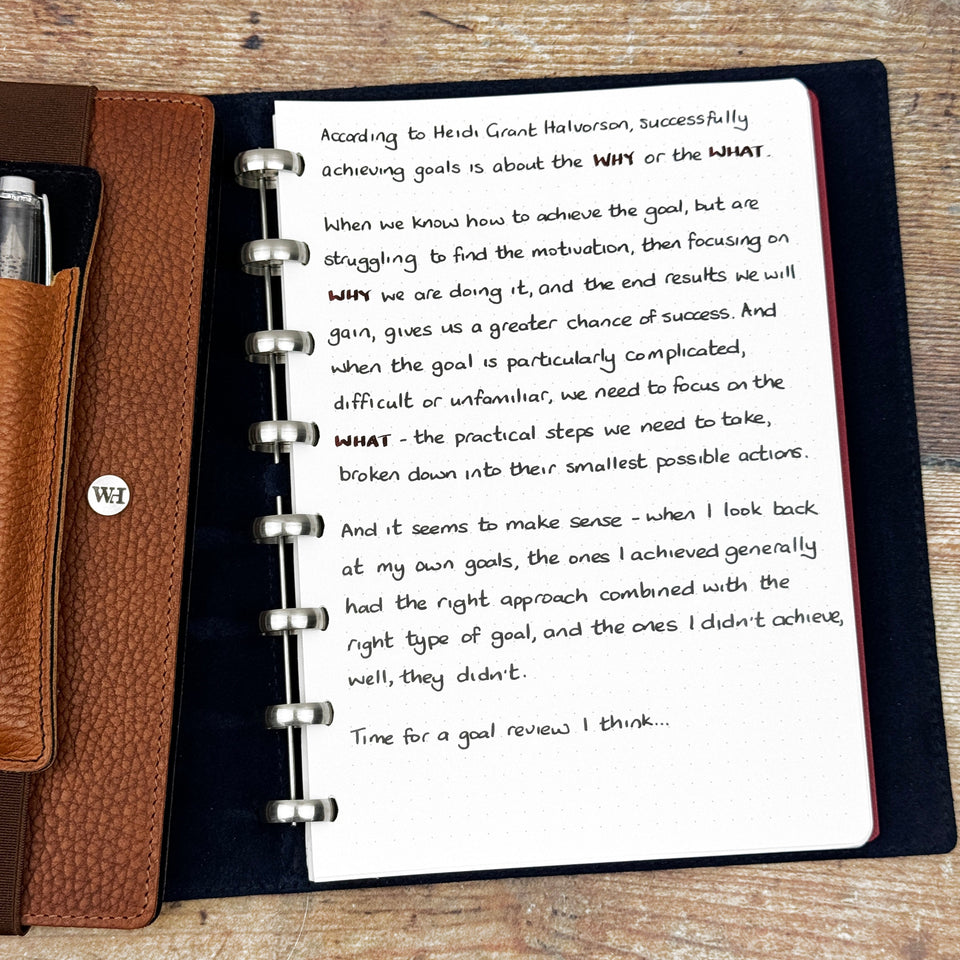 According to Heidi Grant Halvorson, successfully
achieving goals is about the WHY or the WHAT.
When we know how to achieve the goal, but are
struggling to find the motivation, then focusing on
WHY we are doing it, and the end results we will
gain, gives us a greater chance of success. And
when the goal is particularly complicated,
difficult or unfamiliar, we need to focus on the
WHAT - the practical steps we need to take,
broken down into their smallest possible actions.
And it seems to make sense - when I look back
at my own goals, the ones I achieved generally
had the right approach combined with the
right type of goal, and the ones I didn't achieve,
well, they didn't.
Time for a goal review I think...
WH